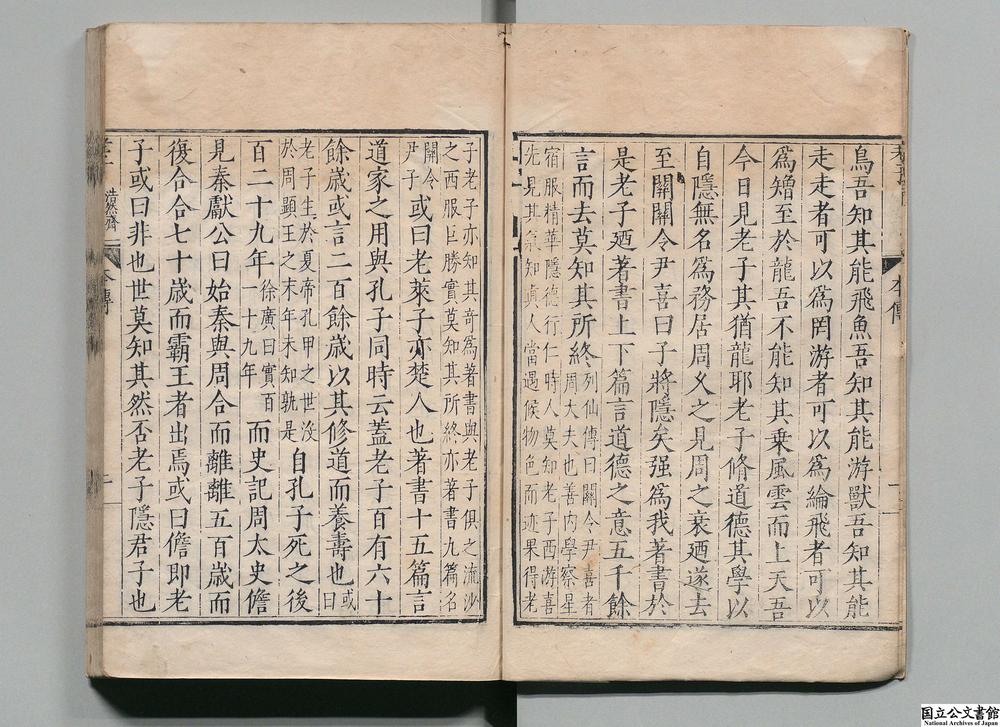 鳥吾知其能飛魚吾知其能游獸吾知其能
走走者可以爲罔游者可以爲綸飛者可以
爲矰至於龍吾不能知其乗風雲而上天吾
今日見老子其猶龍耶老子脩道德其學以
自隱無名爲務居周乆之見周之衰廼遂去
至關關令尹喜曰子將隱矣强爲我著書於
是老子廼著書上下篇言道德之意五千餘
言而去莫知其所終
列仙傳曰關令尹喜者
周大夫也善内學察星
宿服精華隱德行仁時人莫知老子西游喜
先見其氣知眞人當遇候物色而迹果得老
本傳
子老子亦知其奇爲著書與老子俱之流沙
之西服巨勝實莫知其所終亦著書九篇名
關令
尹子
或曰老萊子亦楚人也著書十五篇言
道家之用與孔子同時云蓋老子百有六十
餘歳或言二百餘歳以其修道而養壽也
或曰
老子生於夏帝孔甲之世没
於周顯王之末年未知孰是
自孔子死之後
百二十九年
徐廣曰實百
一十九年
而史記周太史儋
見秦獻公曰始秦與周合而離離五百歳而
復合合七十歳而霸王者出焉或曰儋即老
子或曰非也世莫知其然否老子隱君子也
浩然齋
本傳
二
国立公文書館
National Archives of Japan